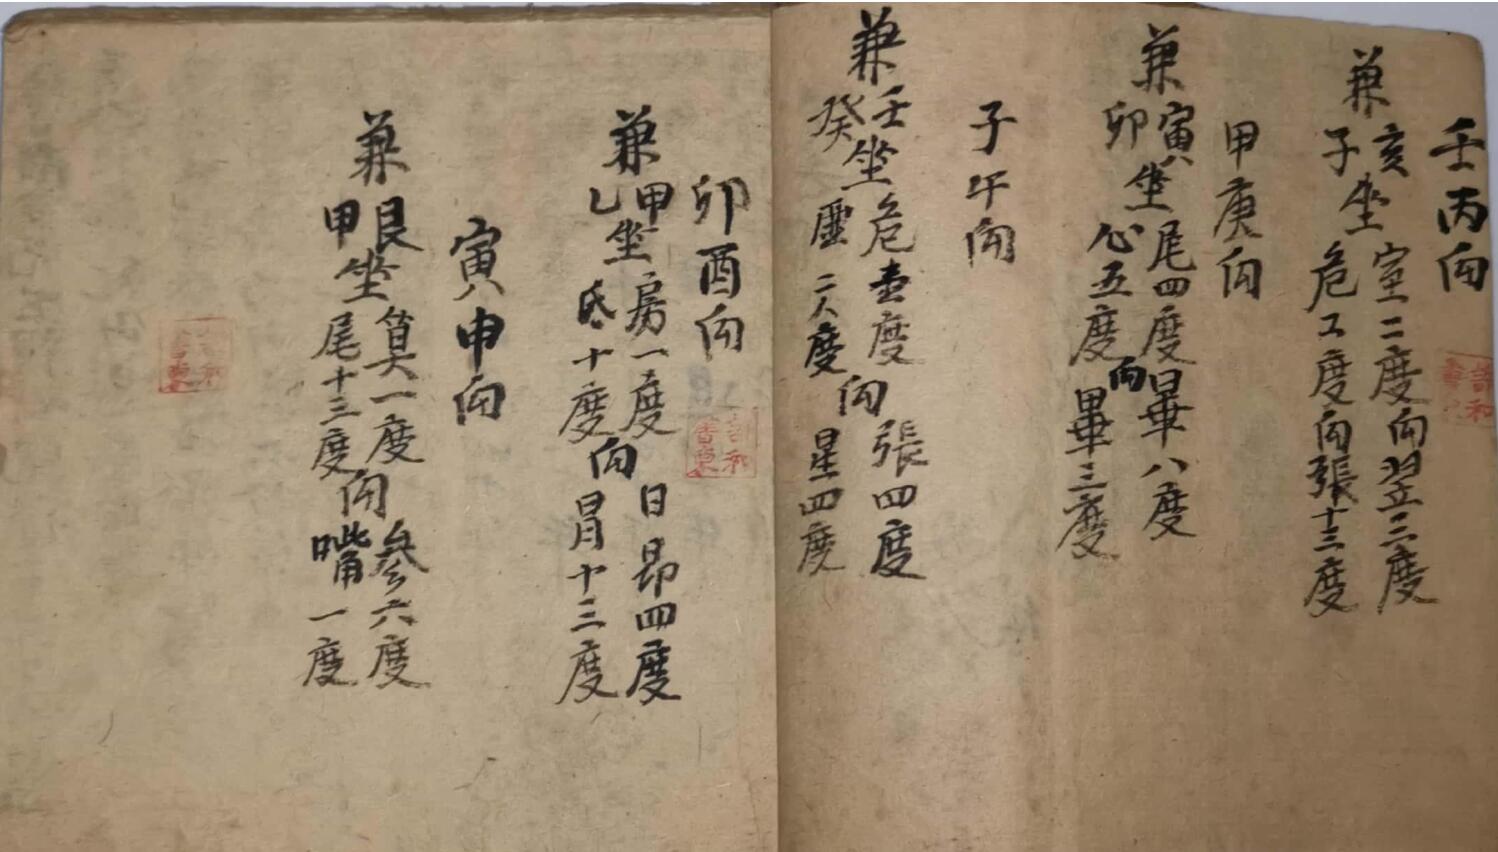 壬丙向
兼亥坐室二度向翌三度
子危工度張十三度
甲庚向
兼寅坐尾四度向畢八度
卯心五度畢三度
子午向
兼壬坐危壹度向張四度
癸虛二八度星四度
卯酉向
兼甲坐房一度向日昴四度
乙氐十度胃十三度
寅申向
兼艮坐箕一度向參六度
甲尾十三度嘴一度